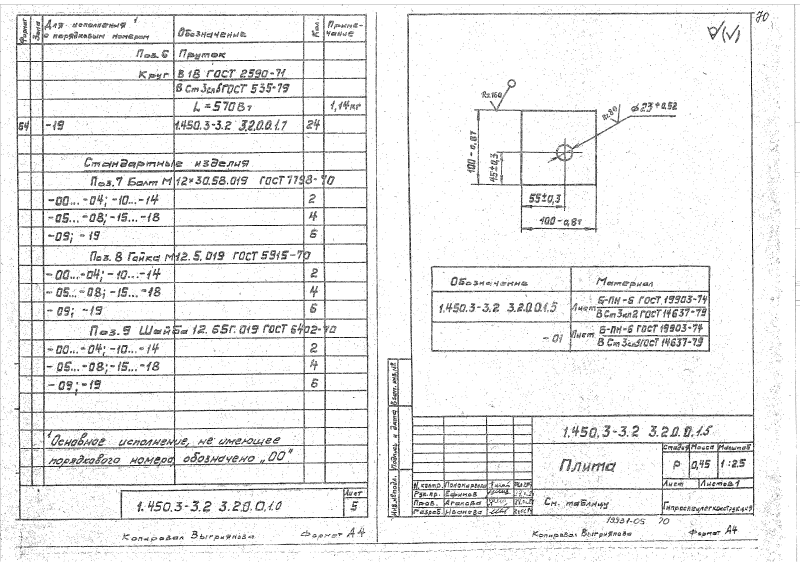 Формат Зона Для исполнения ¹ с порядковым номером Обозначение Кол. Приме-чание
Поз. 6 Пруток
Круг В18 ГОСТ 2590-71
В Ст3сп5 ГОСТ 535-79
L = 570 Вт 1,14кг
64 -19 1.450.3-3.2 3.2.0.0.1.7 24
Стандартные изделия
Поз.7 Болт М12×30.58.019 ГОСТ 7798-70
-00...-04; -10...-14 2
-05...-08; -15...-18 4
-09; -19 6
Поз. 8 Гайка М12.5.019 ГОСТ 5915-70
-00...-04; -10...-14 2
-05...-08; -15...-18 4
-09; -19 6
Поз. 9 Шайба 12.65Г.019 ГОСТ 6402-70
-00...-04; -10...-14 2
-05...-08; -15...-18 4
-09; -19 6
¹Основное исполнение, не имеющее
порядкового номера, обозначено „00"
1.450.3-3.2 3.2.0.0.1.0
Лист
5
Копировал Выгриянова Формат А4
70
Rz160
Rz80
⌀23+0,52
100-0,87
45±0,3
55±0,3
100-0,87
Обозначение Материал
1.450.3-3.2 3.2.0.0.1.5 Лист Б-ПН-6 ГОСТ 19903-74
В Ст3кп2 ГОСТ 14637-79
-01 Лист Б-ПН-6 ГОСТ 19903-74
В Ст3сп5 ГОСТ 14637-79
Взам. инв. №
Подпись и дата
Инв. № подл.
1.450.3-3.2 3.2.0.0.1.5
Плита
Стадия Масса Масштаб
Р 0,45 1:2.5
Лист Листов 1
Н. контр.
Рук. пр. Ефимов
Пров. Агапова
Разраб. Иванова
См. таблицу
Гипроспецлегконструкция
19991-05 70
Копировал Выгриянова Формат А4